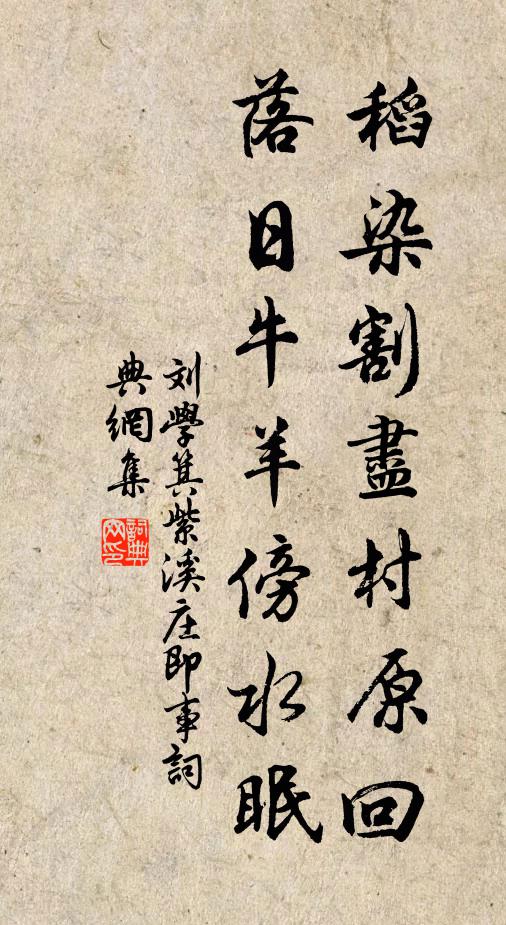 稻染割盡村原回
落日牛羊傍水眠
刘學箕紫溪庄即事詞
典網集
詞典網印